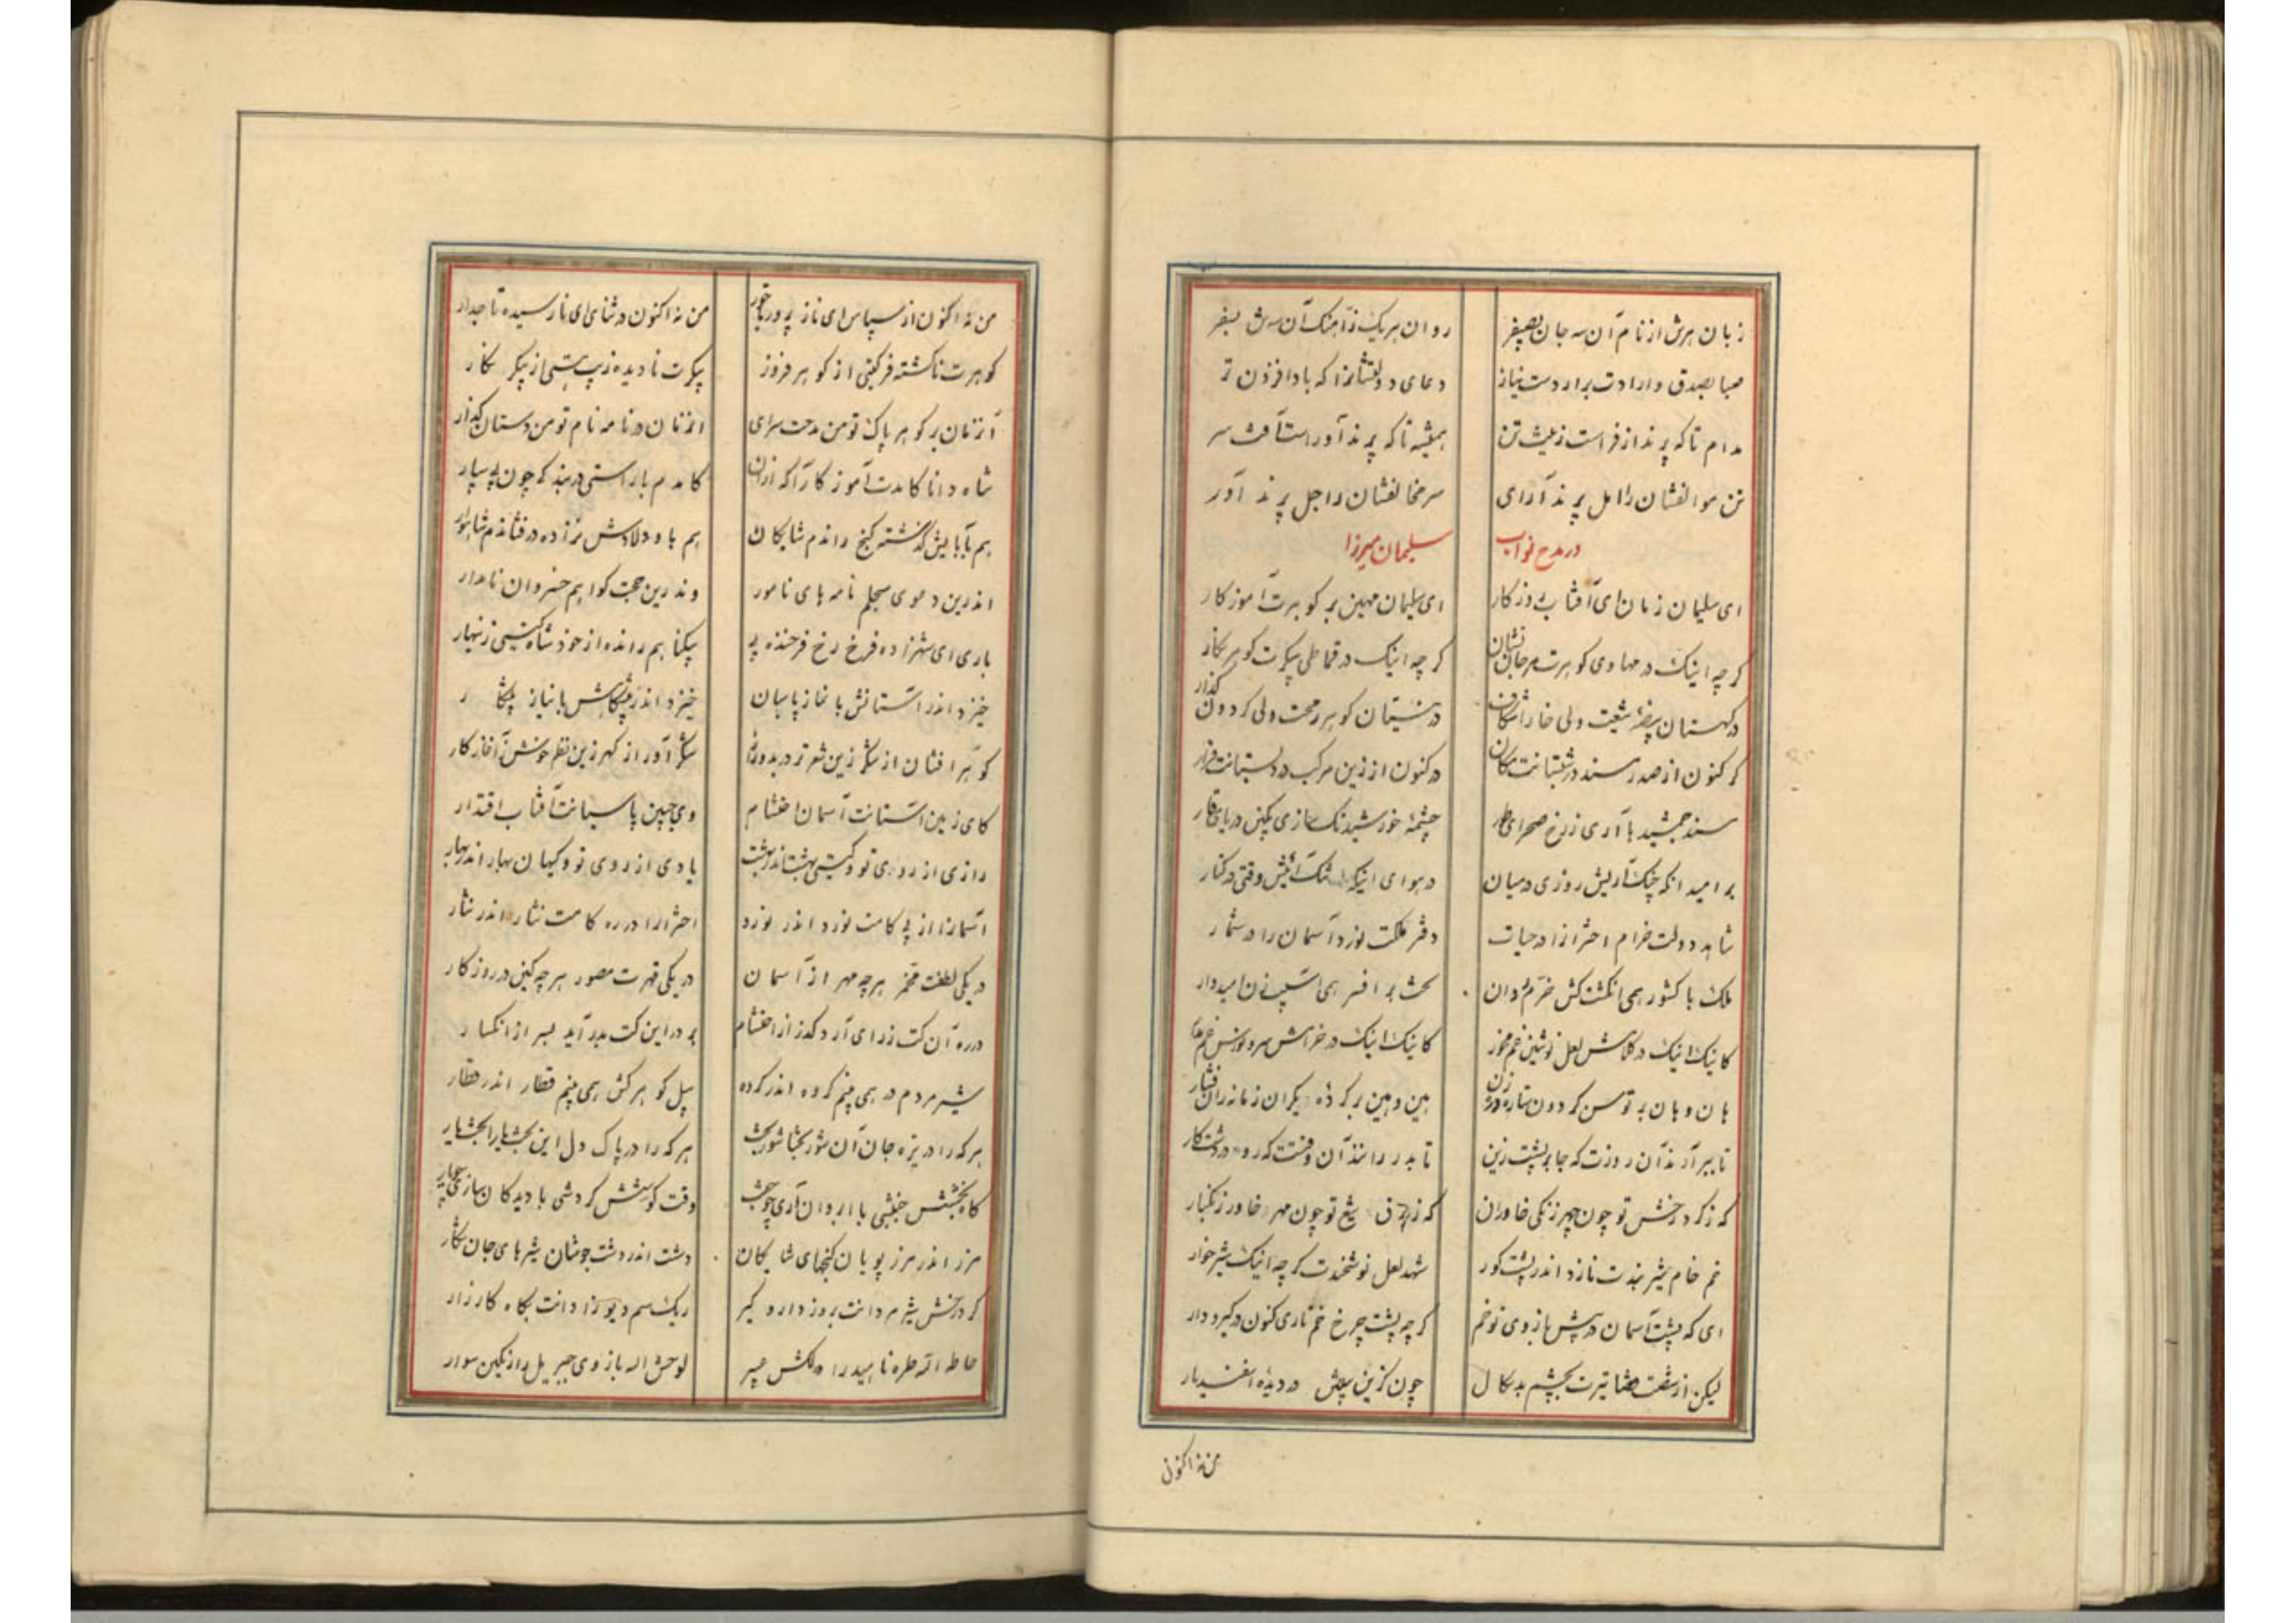 زبان هرش از نام آن سه جان بصفر روان هریک ز آهنگ آن سه ش بسفر
صبا بصدق و ارادت برار دست نیاز دعای دولتشانرا که بادا فزون تر
مدام تا که پرند از فراست زینت تن همیشه تا که پرند آور است آفت سر
تن موالفشان را امل پرند آرای سر مخالفشان را اجل پرند آور
در مدح نواب سلیمان میرزا
ای سلیمان زمان ای آفتاب روزگار ای سلیمان مهین بر گوهرت آموزگار
گر چه اینک در مهاوی گوهرت مرجان نشان گر چه اینک در قماطی پیکرت گوهر نگار
در شبستان گوهر رحمت ولی گردون گذار
کز کنون از صدر مسند در شبستانت مکان در کنون از زین مرکب در دبستانت قرار
مسند جمشید با آری زرخ صحرای چشمه خورشید سازی دریای قار
بر امید آنکه چنگ آریش روزی در میان در هوای اینکه تنگ آئیش وقتی در کنار
شاهد دولت خرام اختران را در حیات دفتر ملکت نورد آسمان را در شمار
ملک با کشور همی انگشت کش خرم روان تخت بر افسر همی امیدوار
کاینک اینک در لعل نوشین غم مخور کاینک اینک در خرامش سرو نورس غم مدار
هان و هان بر توسن گردون ستاره هین و هین بر گرده یکران زمانه ران فشار
تا ببر آرند آن روزت که جا بر پشت زین تا بدر رانند آن وقتت که رو در دشت کار
که ز گرد رخش تو چون چهر زنگی خاوران که ز برق تیغ تو چون مهر خاور زنگبار
خم خام شیر بندت نازد اندر پشت گور شهد لعل نوشخندت گر چه اینک شیر خوار
ای که پشت آسمان در پیش بازوی تو خم گر چه پشت چرخ خم ناری کنون در گیر و دار
لیکن از شصت قضا تیرت بچشم بدسگال چون گزین پیش در دیده اسفندیار
من نه اکنون
من نه اکنون از سپاس ای ناز پرور من نه اکنون در ثنای ای نارسیده تاجدار
گوهرت ناگشته فر گیتی از گوهر فروز پیکرت نادیده زیب هستی از پیکر نگار
از زمان بر گوهر پاک تو من مدحت سرای از زمان در نامه نام تو من دستان گذار
شاه دانا کامدت آموزگار آگه از ان کامدم با راستی در بند گر چون پی سپار
هم بآبایش گذشته گنج راندم شایگان هم باولادش نزاده در فشاندم شاهوار
اندرین دعوی سجلم نامه های نامور وندرین حجت گواهم خسروان نامدار
باری ای شهزاده فرخ رخ فرخنده پی بیگناهم رانده از خود شاه گیتی زینهار
خیز و اندر آستانش با نماز پاسبان خیز و اندر پیشگاهش با نیاز
گوهر افشان از شکر زین شعر تر شکر آور از گهر زین نظم خوش آغاز کار
کای زمین آستانت آسمان احتشام وی جبین پاسبانت آفتاب اقتدار
رازی از روی تو و گیتی بهشت اندر بهشت یادی از روی تو و کیهان بهار اندر بهار
آسمانرا از پی کامت نورد اندر نورد اخترانرا در ره کامت نثار اندر نثار
در یکی لطفت مخمر هر چه مهر از آسمان در یکی قهرت مصور هر چه کین در روزگار
در ره آن کت ز رای آرد گذر از احتشام بر در این کت بدر آید بسر از انکسار
شیر مردم در همی بینم گروه اندر گروه پیل کوهر کش همی بینم قطار اندر قطار
هر که را در تیره جان آن شور بختا شور بخت هر که را در پاک دل این بختیارا بختیار
گاه بخششش جنبشی با ابروان آری وقت کوشش گردشی با دیدگان
مرز اندر مرز پویان گنجهای شایگان دشت اندر دشت جوشان شیرهای جان شکار
گرد رخش شیر مردانت بروز دار و گیر ریگ سم دیو زادانت بگاه کارزار
حاط الله طره ناهید را لوحش الله بازوی جبریل را سوار